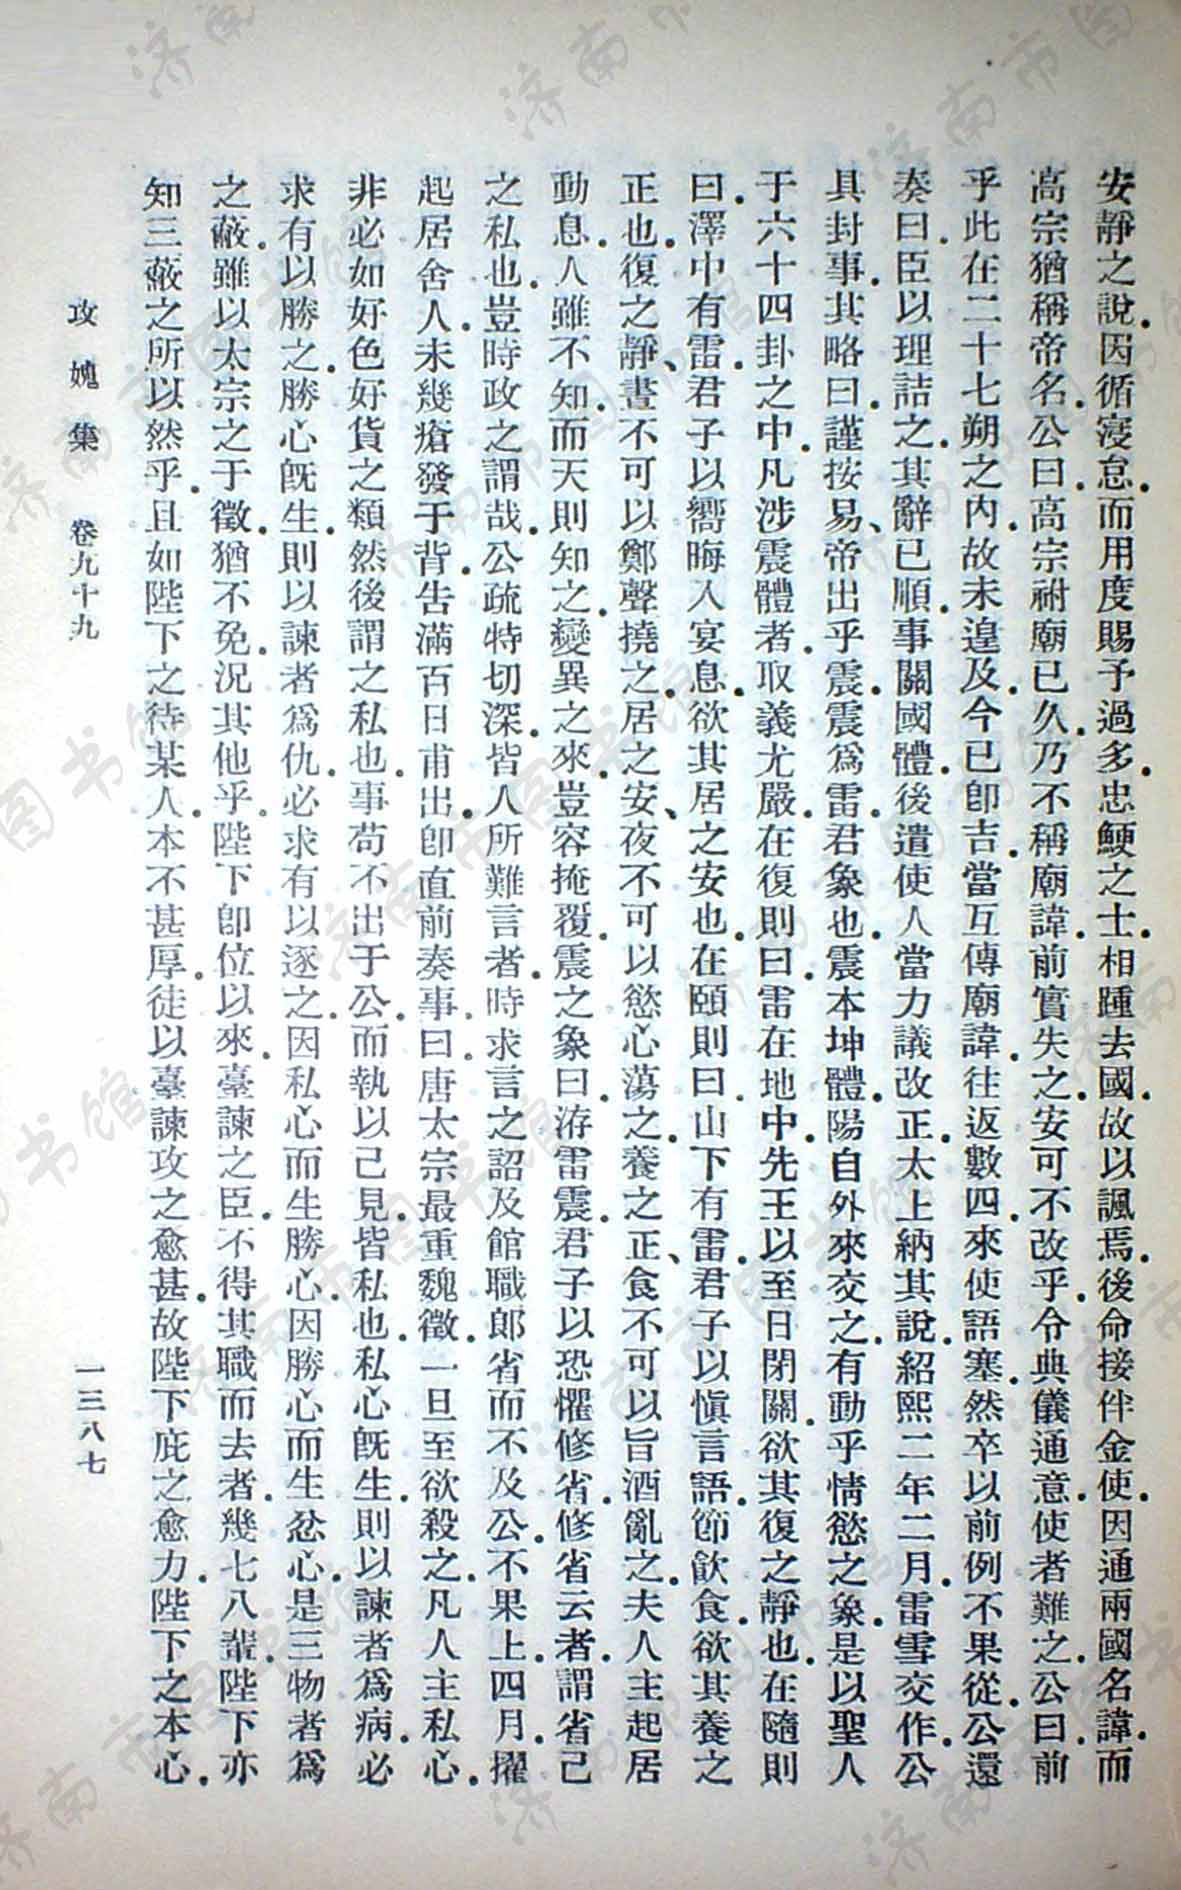 安靜之說.因循寖怠.而用度賜予過多.忠鯁之士.相踵去國.故以諷焉.後命接伴金使.因通兩國名諱.而
高宗猶稱帝名.公曰.高宗祔廟已久.乃不稱廟諱.前實失之.安可不改乎.令典儀通意.使者難之.公曰.前
乎此在二十七朔之內.故未遑及.今已卽吉.當互傳廟諱.往返數四.來使語塞.然卒以前例不果從.公還
奏曰.臣以理詰之.其辭已順.事關國體.後遣使人.當力議改正.太上納其說.紹熙二年二月.雷雪交作.公
具封事.其略曰.謹按易、帝出乎震.震爲雷.君象也.震本坤體.陽自外來交之.有動乎情慾之象.是以聖人
于六十四卦之中.凡涉震體者.取義尤嚴.在復則曰.雷在地中.先王以至日閉關.欲其復之靜也.在隨則
曰.澤中有雷.君子以嚮晦入宴息.欲其居之安也.在頤則曰.山下有雷.君子以愼言語.節飮食.欲其養之
正也.復之靜、晝不可以鄭聲撓之.居之安、夜不可以慾心蕩之.養之正、食不可以旨酒亂之.夫人主起居
動息.人雖不知.而天則知之.變異之來.豈容掩覆.震之象曰.洊雷震.君子以恐懼修省.修省云者.謂省己
之私也.豈時政之謂哉.公疏特切深.皆人所難言者.時求言之詔及館職郞省而不及公.不果上.四月.擢
起居舍人.未幾瘡發于背.告滿百日甫出.卽直前奏事曰.唐太宗最重魏徵.一旦至欲殺之.凡人主私心.
非必如好色好貨之類.然後謂之私也.事苟不出于公.而執以己見.皆私也.私心旣生.則以諫者爲病.必
求有以勝之.勝心旣生.則以諫者爲仇.必求有以逐之.因私心而生勝心.因勝心而生忿心.是三物者爲
之蔽.雖以太宗之于徵.猶不免.況其他乎.陛下卽位以來.臺諫之臣.不得其職而去者.幾七八輩.陛下亦
知三蔽之所以然乎.且如陛下之待某人.本不甚厚.徒以臺諫攻之愈甚.故陛下庇之愈力.陛下之本心.
攻媿集 卷九十九 一三八七